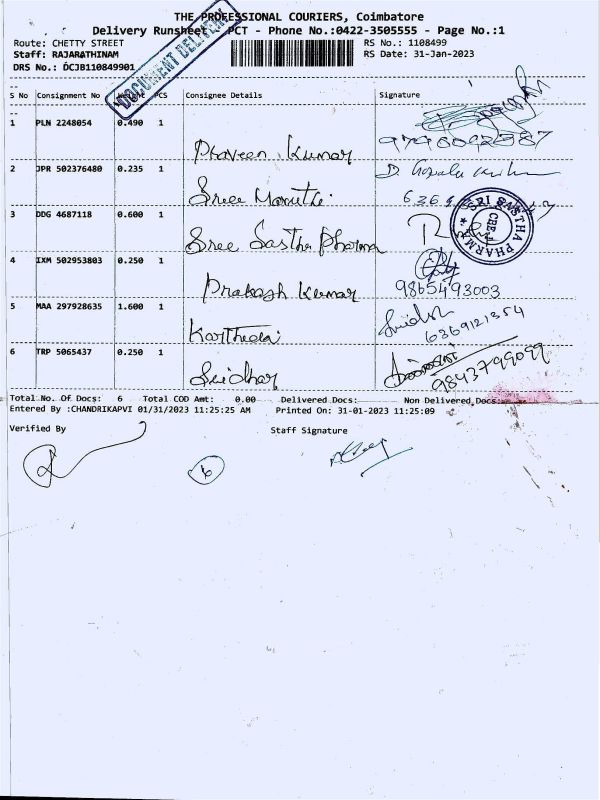 THE PROFESSIONAL COURIERS, Coimbatore
Delivery Runsheet PCT - Phone No.:0422-3505555 - Page No.:1
Route: CHETTY STREET
RS No.: 1108499
Staff: RAJARATHINAM
RS Date: 31-Jan-2023
DRS No.: DCJB110849901
DOCUMENT DELIVERY
S No Consignment No Weight PCS Consignee Details Signature
1 PLN 2248054 0.490 1
Praveen Kumar
2 JPR 502376480 0.235 1
Sree Maruthi
3 DDG 4687118 0.600 1
Sree Sastha Pharma
SRI SASTHA PHARMA
4 IXM 502953803 0.250 1
Prakash Kumar 9865493003
5 MAA 297928635 1.600 1
Karthick 6369121354
6 TRP 5065437 0.250 1
Sridhar 9843799099
Total No. Of Docs: 6 Total COD Amt: 0.00 Delivered Docs: Non Delivered Docs:
Entered By :CHANDRIKAPVI 01/31/2023 11:25:25 AM Printed On: 31-01-2023 11:25:09
Verified By Staff Signature
6